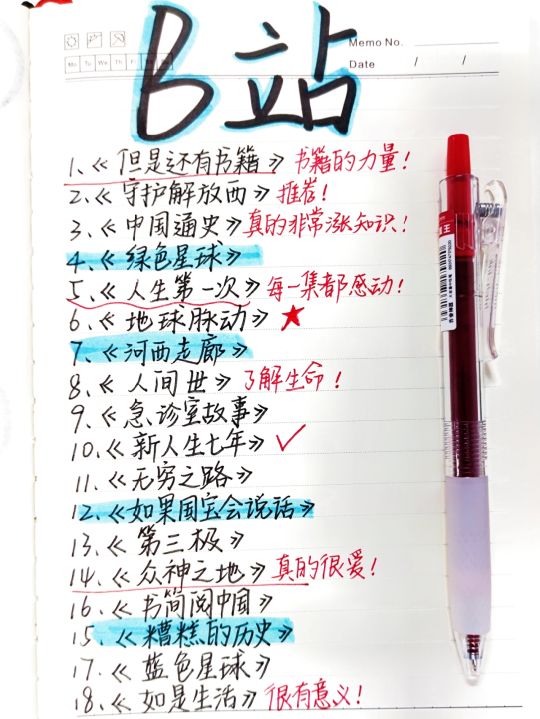 B站
Memo No.
Mo Tu We Th Fr Sa Su
Date / /
1、《但是还有书籍》书籍的力量！
2、《守护解放西》推荐！
3、《中国通史》真的非常涨知识！
4、《绿色星球》
5、《人生第一次》每一集都感动！
6、《地球脉动》★
7、《河西走廊》
8、《人间世》了解生命！
9、《急诊室故事》
10、《新人生七年》✓
11、《无穷之路》
12、《如果国宝会说话》
13、《第三极》
14、《众神之地》真的很爱！
16、《书简阅中国》
15、《糟糕的历史》
17、《蓝色星球》
18、《如是生活》很有意义！